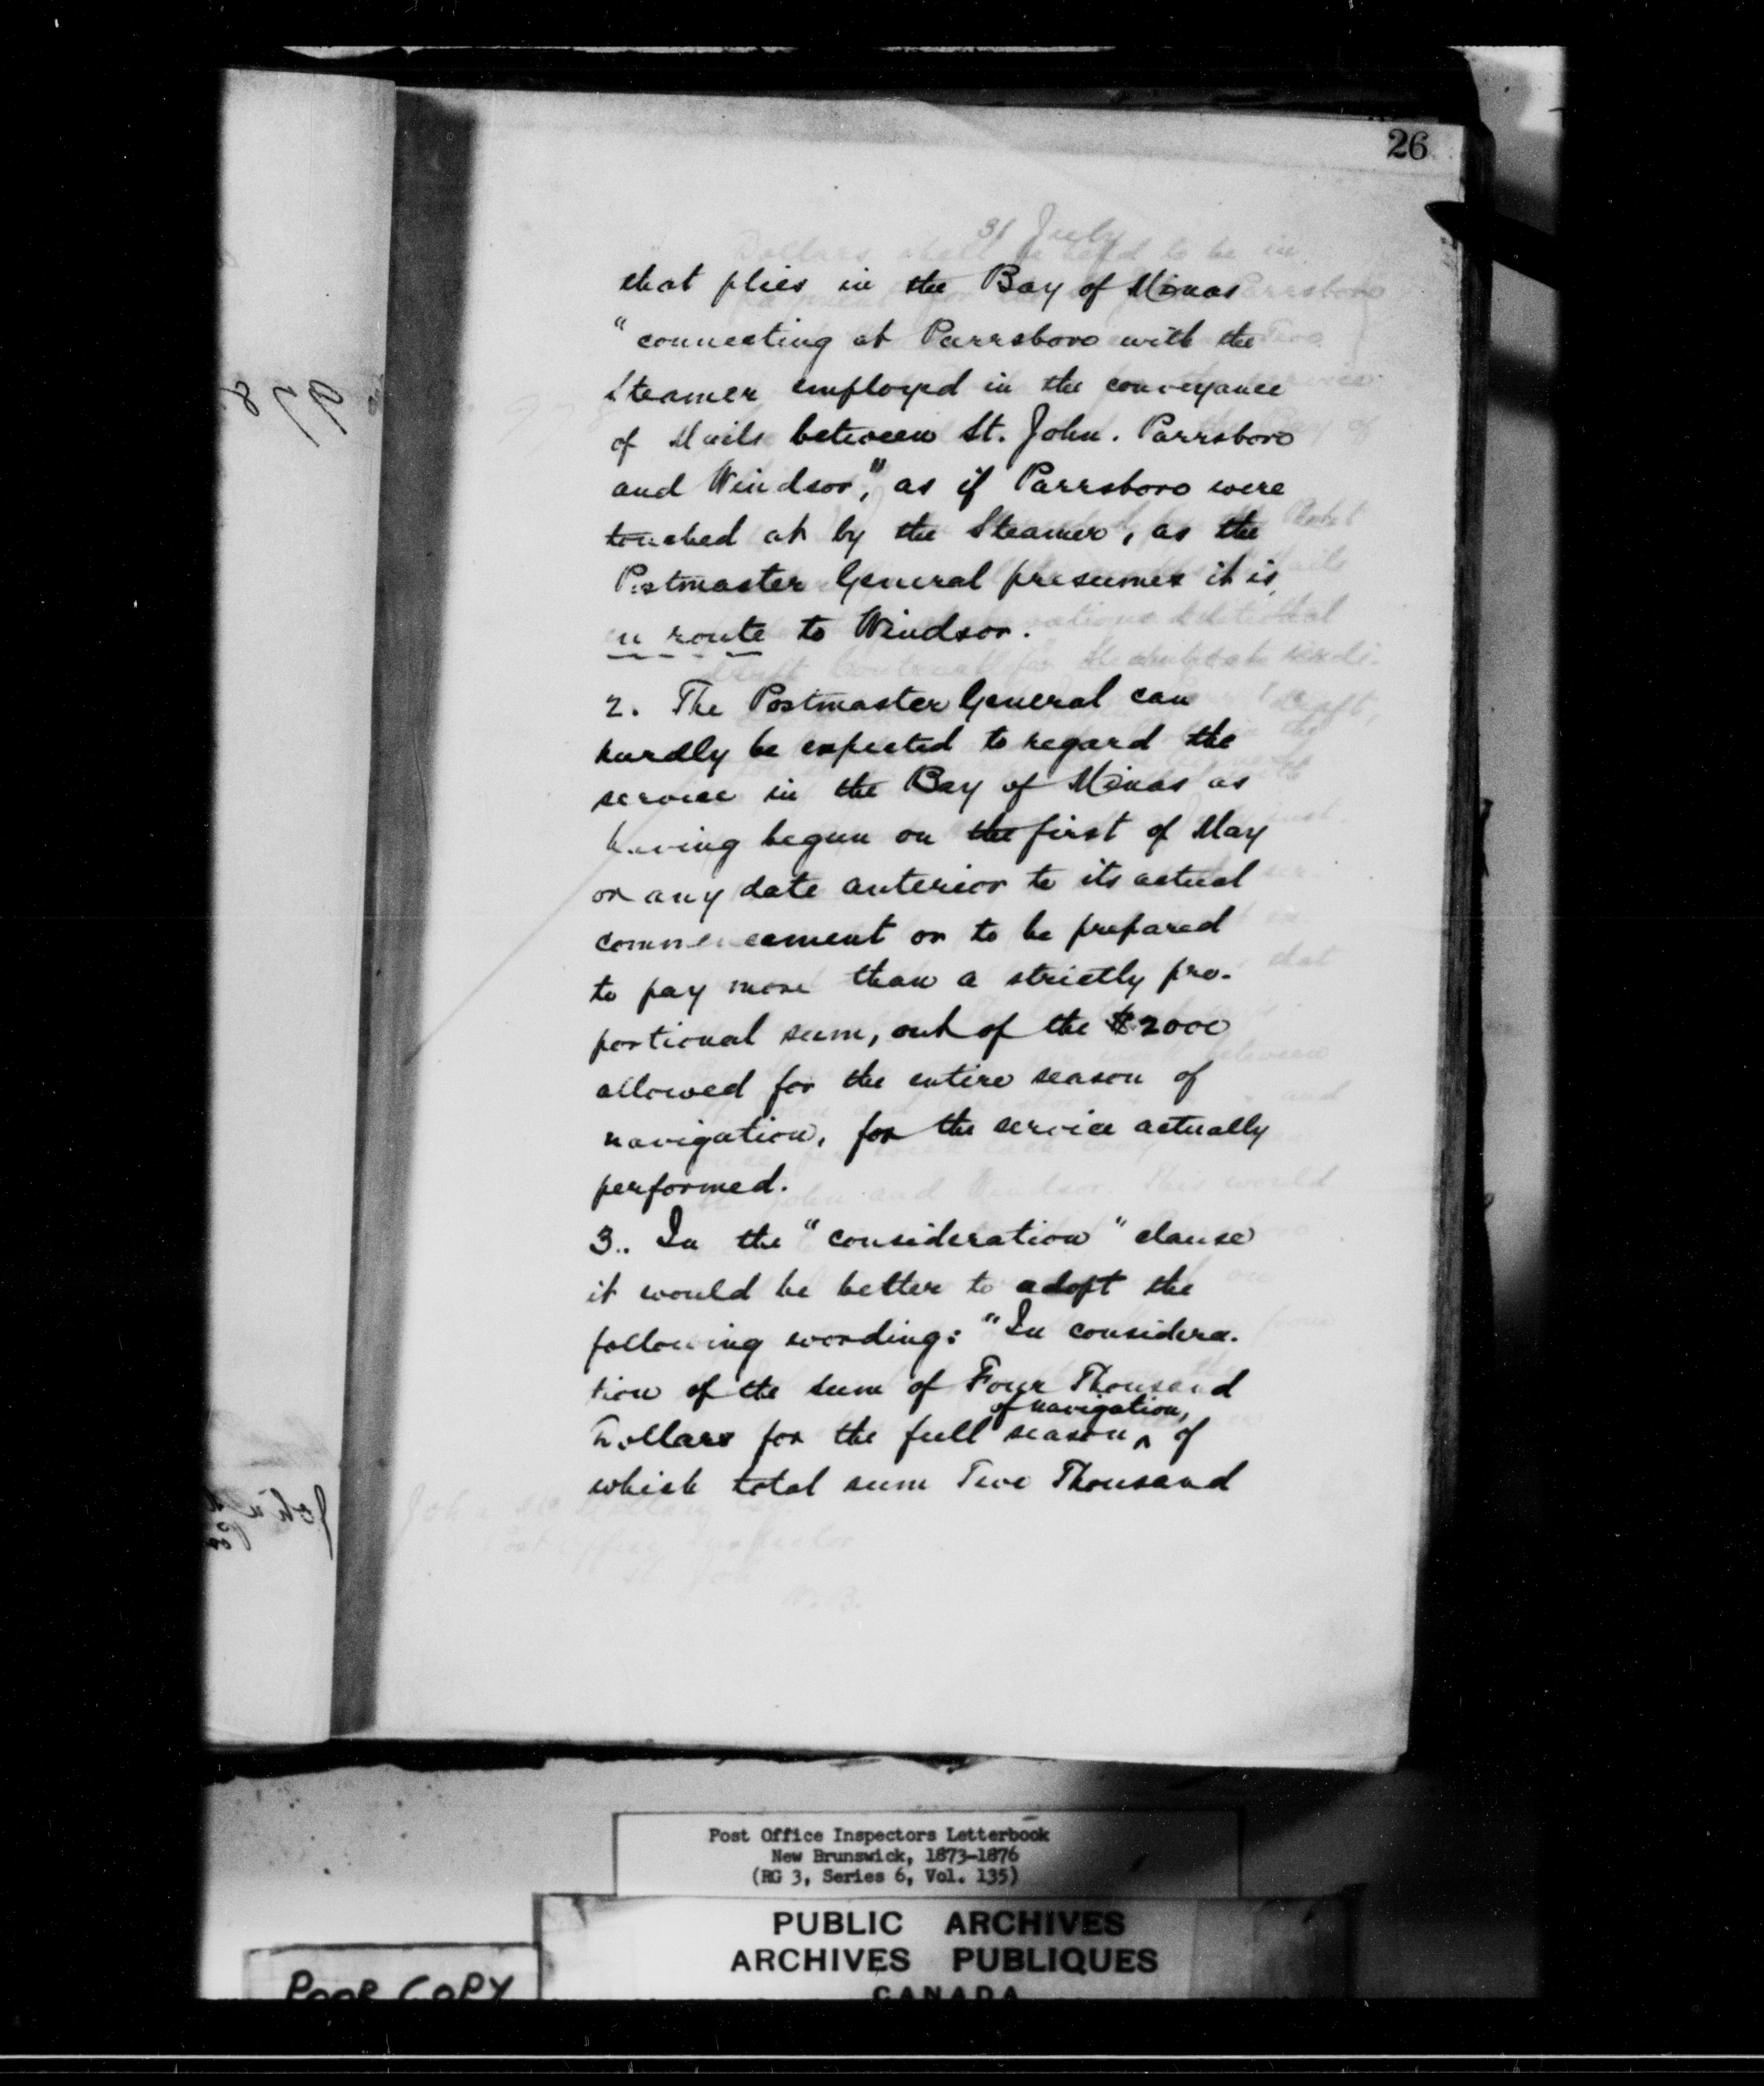 26
31 July
that plies in the Bay of Minas
"connecting at Parrsboro with the
Steamer employed in the conveyance
of Mails between St. John. Parrsboro
and Windsor," as if Parrsboro were
touched at by the Steamer, as the
Postmaster General presumes it is,
en route to Windsor.
2. The Postmaster General can
hardly be expected to regard the
service in the Bay of Minas as
having begun on the first of May
or any date anterior to its actual
commencement or to be prepared
to pay more than a strictly pro-
portional sum, out of the $2000
allowed for the entire season of
navigation, for the service actually
performed.
3. In the "consideration" clause
it would be better to adopt the
following wording: "In considera-
tion of the sum of Four Thousand
Dollars for the full season of navigation, of
which total sum Two Thousand
Post Office Inspectors Letterbook
New Brunswick, 1873-1876
(RG 3, Series 6, Vol. 135)
PUBLIC ARCHIVES
ARCHIVES PUBLIQUES
CANADA
POOR COPY